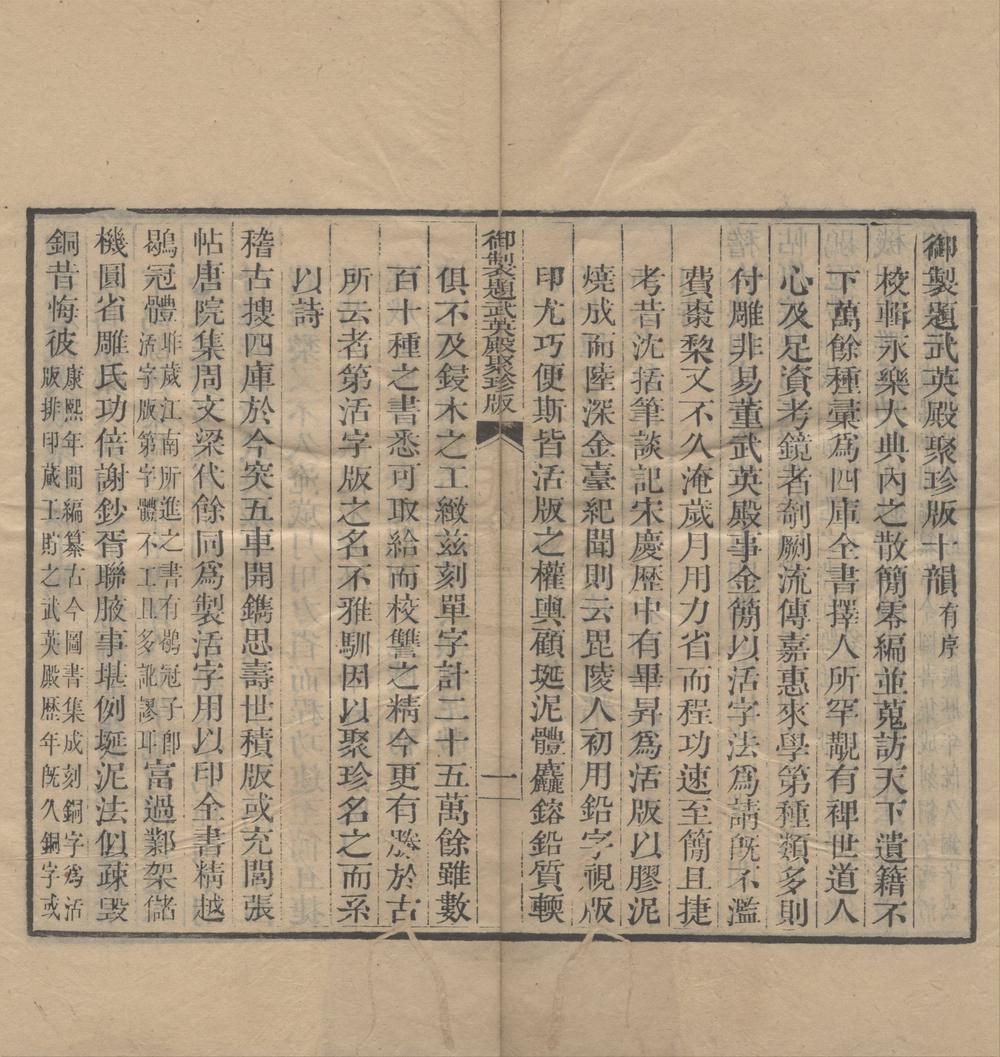 御製題武英殿聚珍版十韻有序
校輯永樂大典內之散簡零編並蒐訪天下遺籍不
下萬餘種彚爲四庫全書擇人所罕覯有裨世道人
心及足資考鏡者剞劂流傳嘉惠來學第種類多則
付雕非易董武英殿事金簡以活字法爲請旣不濫
費棗棃又不久淹歲月用力省而程功速至簡且捷
考昔沈括筆談記宋慶歷中有畢昇爲活版以膠泥
燒成而陸深金臺紀聞則云毘陵人初用鉛字視版
印尤巧便斯皆活版之權輿顧埏泥體麤鎔鉛質輭
御製題武英殿聚珍版
一
俱不及鋟木之工緻茲刻單字計二十五萬餘雖數
百十種之書悉可取給而校讐之精今更有勝於古
所云者第活字版之名不雅馴因以聚珍名之而系
以詩
稽古搜四庫於今突五車開鐫思壽世積版或充閭張
帖唐院集周文梁代餘同爲製活字用以印全書精越
鶡冠體昨歲江南所進之書有鶡冠子卽
活字版第字體不工且多訛謬耳富過鄴架儲
機圓省雕氏功倍謝鈔胥聯腋事堪例埏泥法似疎毀
銅昔悔彼康熙年間編纂古今圖書集成刻銅字爲活
版排印蕆工貯之武英殿歷年旣久銅字或